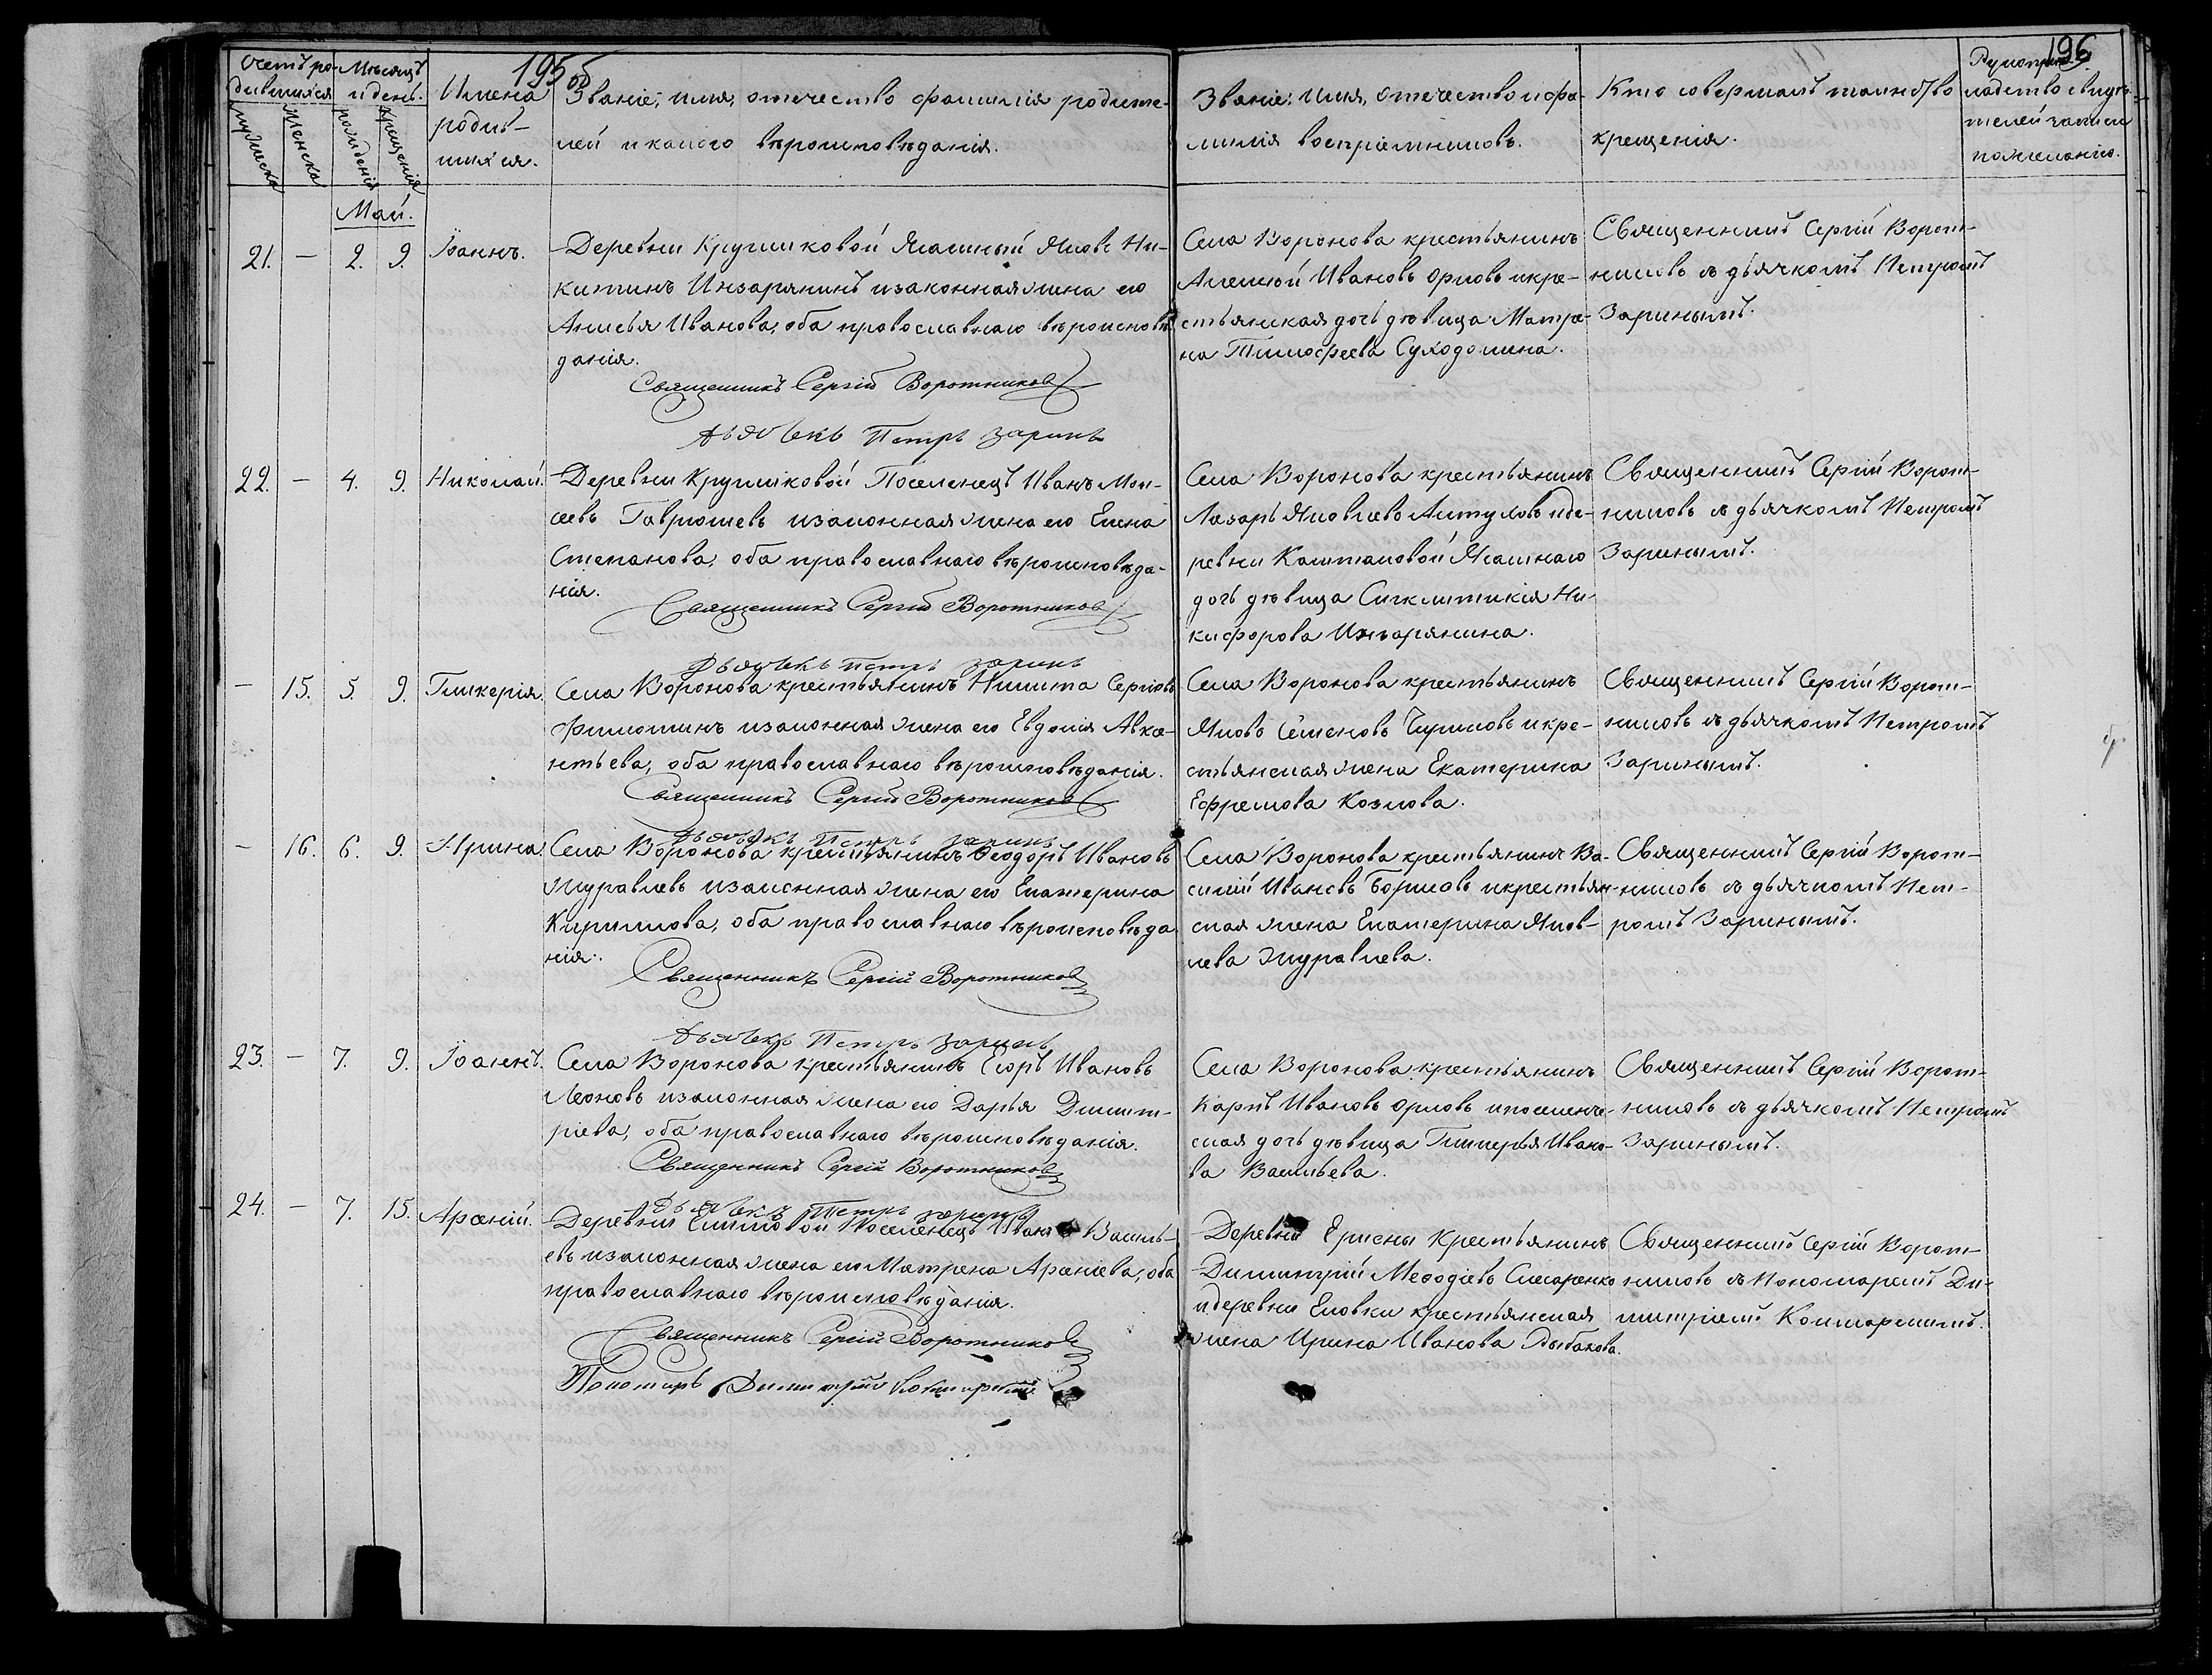 195 об
196
Счетъ ро-
дившихся
Мѣсяцъ
и день.
Имена
родив-
шихся.
Званіе, имя, отечество фамилія родите-
лей и какого вѣроисповѣданія.
Званіе, имя, отечество и фа-
милія воспріемниковъ.
Кто совершалъ таинство
крещенія.
Рукоприк-
ладство свидѣ-
телей записи
по желанію.
мужеска
женска
рожденія
крещенія
Май.
21. — 2. 9. Іоаннъ.
Деревни Кругликовой Ясашный Яковъ Ни-
китинъ Инзарянинъ и законная жена его
Анисья Иванова, оба православнаго вѣроисповѣ
данія.
Священникъ Сергій Воротниковъ
Дьячекъ Петръ Заринъ
Села Воронова крестьянинъ
Алексѣй Ивановъ Орловъ и кре-
стьянская дочь дѣвица Матре-
на Тимофеева Суходолина.
Священникъ Сергій Ворот-
никовъ съ дьячкомъ Петромъ
Заринымъ.
22. — 4. 9. Николай.
Деревни Кругликовой Поселенецъ Иванъ Мои-
сеевъ Гаврюшевъ и законная жена его Елена
Степанова, оба православнаго вѣроисповѣда-
нія.
Священникъ Сергій Воротниковъ
Дьячекъ Петръ Заринъ
Села Воронова крестьянинъ
Лазарь Яковлевъ Алтуховъ и де-
ревни Каштаковой Ясашнаго
дочь дѣвица Сигклитикія Ни-
кифорова Инзарянина.
Священникъ Сергій Ворот-
никовъ съ дьячкомъ Петромъ
Заринымъ.
— 15. 5. 9. Гликерія.
Села Воронова крестьянинъ Никита Сергіевъ
Филотинъ и законная жена его Евдокія Авксе-
нтьева, оба православнаго вѣроисповѣданія.
Священникъ Сергій Воротниковъ
Дьячекъ Петръ Заринъ
Села Воронова крестьянинъ
Яковъ Семеновъ Чуриловъ и кре-
стьянская жена Екатерина
Ефремова Козлова.
Священникъ Сергій Ворот-
никовъ съ дьячкомъ Петромъ
Заринымъ.
— 16. 6. 9. Ирина.
Села Воронова крестьянинъ Ѳеодоръ Ивановъ
Журавлевъ и законная жена его Екатерина
Кирилова, оба православнаго вѣроисповѣда
нія.
Священникъ Сергій Воротниковъ
Дьячекъ Петръ Заринъ
Села Воронова крестьянинъ Ва-
силій Ивановъ Борисовъ и крестьян-
ская жена Екатерина Яков-
лева Журавлева.
Священникъ Сергій Ворот-
никовъ съ дьячкомъ Пет-
ромъ Заринымъ.
23. — 7. 9. Іоаннъ.
Села Воронова крестьянинъ Егоръ Ивановъ
Леоновъ и законная жена его Дарья Димит-
ріева, оба православнаго вѣроисповѣданія.
Священникъ Сергій Воротниковъ
Дьячекъ Петръ Заринъ
Села Воронова крестьянинъ
Карпъ Ивановъ Орловъ и поселенче-
ская дочь дѣвица Гликерья Ивано-
ва Васильева.
Священникъ Сергій Ворот-
никовъ съ дьячкомъ Петромъ
Заринымъ.
24. — 7. 15. Арсеній.
Деревни Поселенецъ Иванъ Василь-
евъ и законная жена его Матрена Арсеніева, оба
православнаго вѣроисповѣданія.
Священникъ Сергій Воротниковъ
Пономарь Димитрій
Деревни Крестьянинъ
Димитрій Меѳодіевъ Слесаренко
и деревни Еловки крестьянская
жена Ирина Иванова Рыбакова.
Священникъ Сергій Ворот-
никовъ съ Пономаремъ Ди-
митріемъ